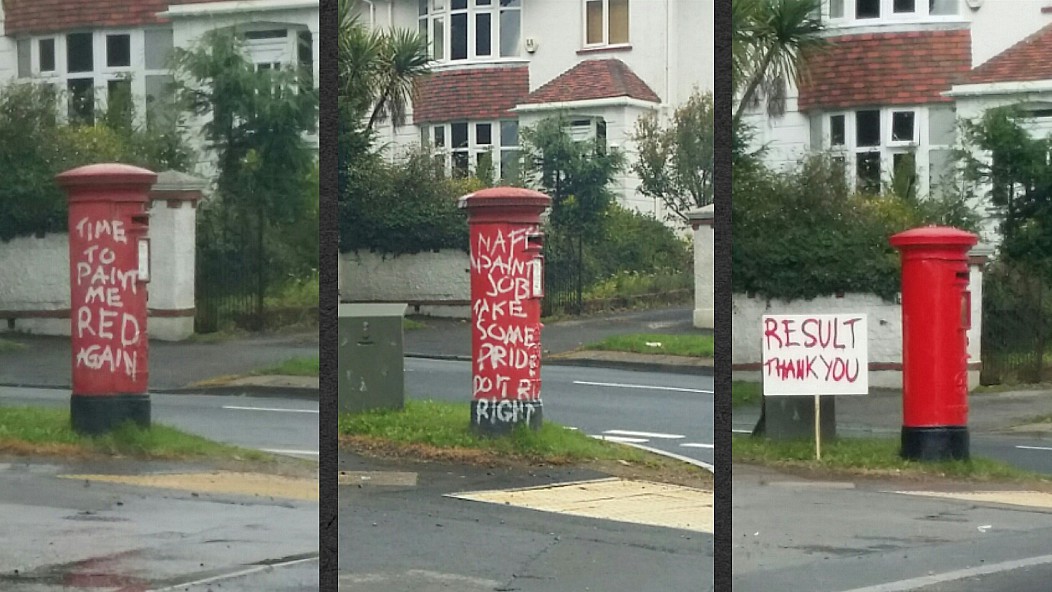 TIME
TO
PAINT
ME
RED
AGAIN
NAFF
PAINT
JOB
TAKE
SOME
PRIDE
DO IT RI
RIGHT
RESULT
THANK YOU